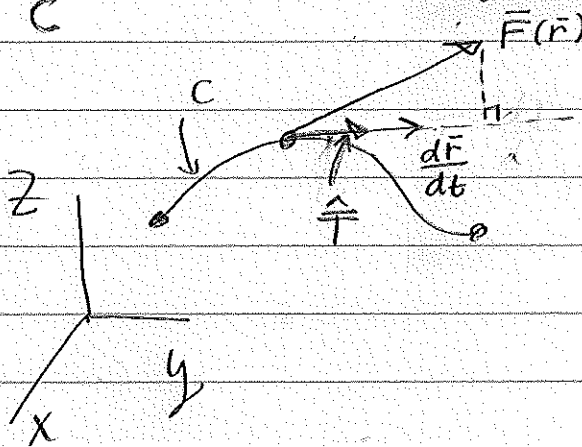 C
F̄(r̄)
C
dr̄
dt
T̂
Z
y
x